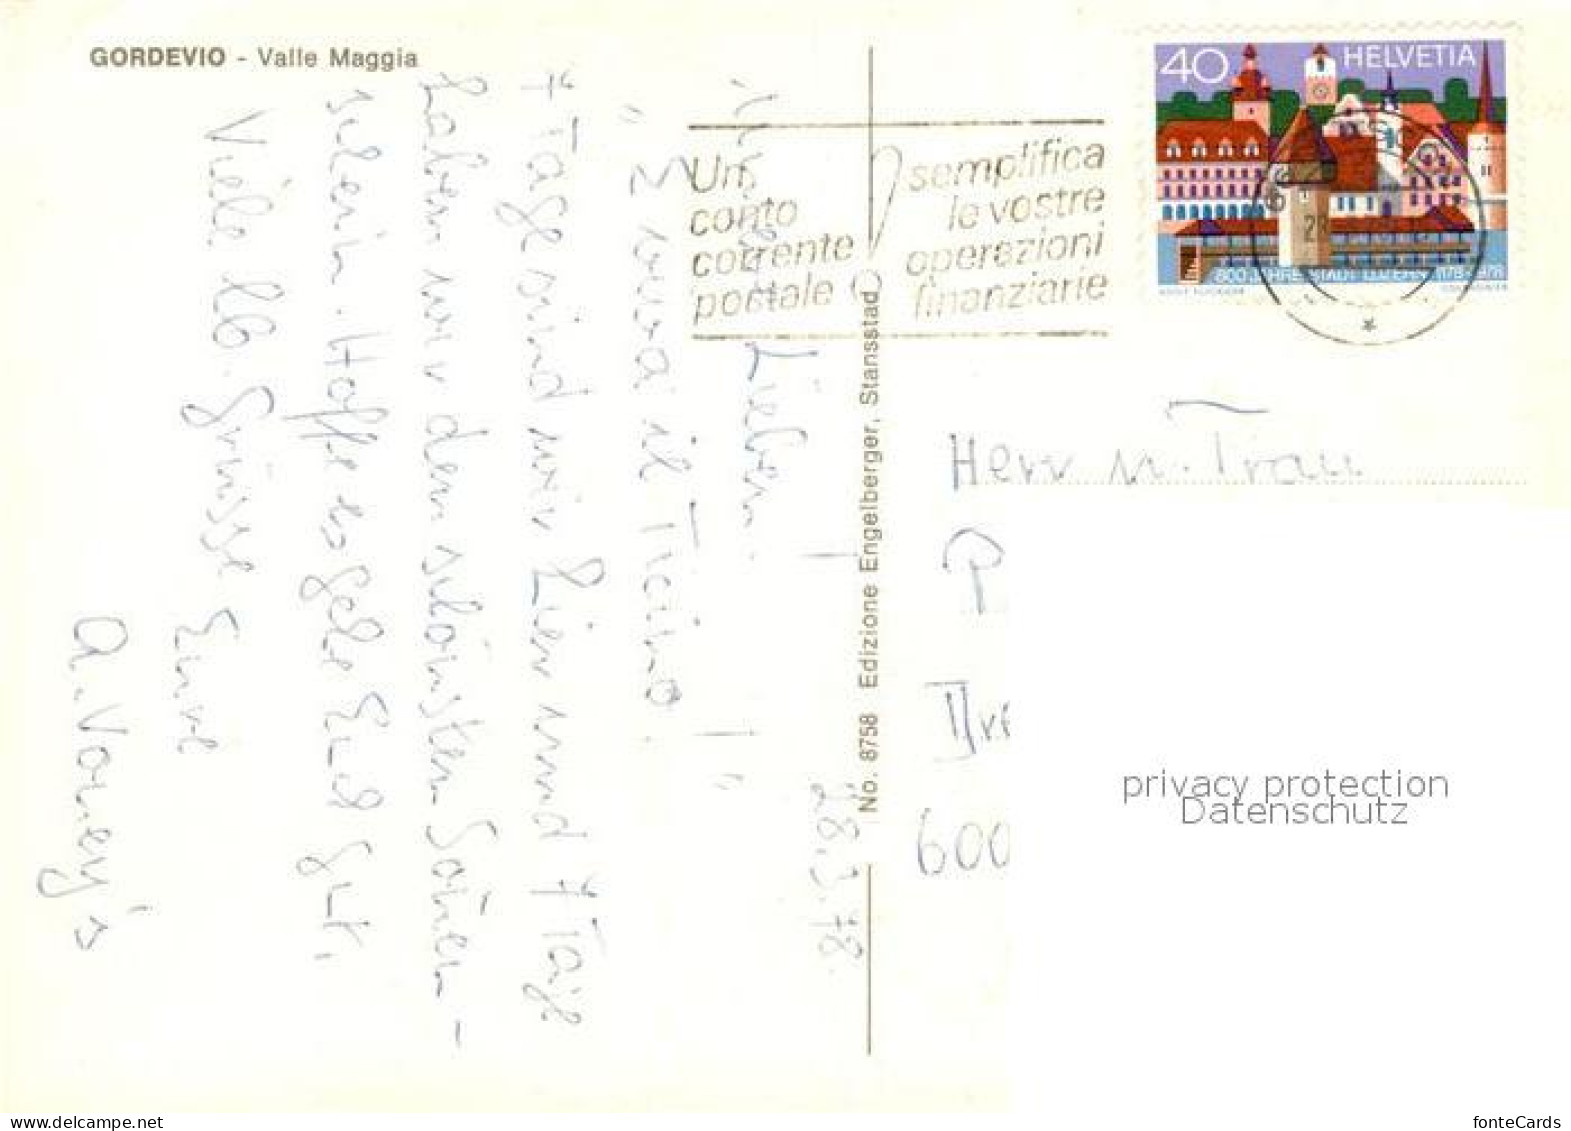 GORDEVIO - Valle Maggia
28.3.78.
Meine Lieben.
" E viva il Ticino. ! "
7 Tage sind wir hier und 7 Tage
haben wir den schönsten Sonnen-
schein. Hoffe es gehe Euch gut,
Viele lb. Grüsse Eure
No. 8758 Edizione Engelberger, Stansstad
Un
conto
corrente
postale
semplifica
le vostre
operazioni
finanziarie
40 HELVETIA
800 JAHRE STADT LUZERN 1178-1978
Herr u. Frau
600
privacy protection
Datenschutz
fonteCards
www.delcampe.net